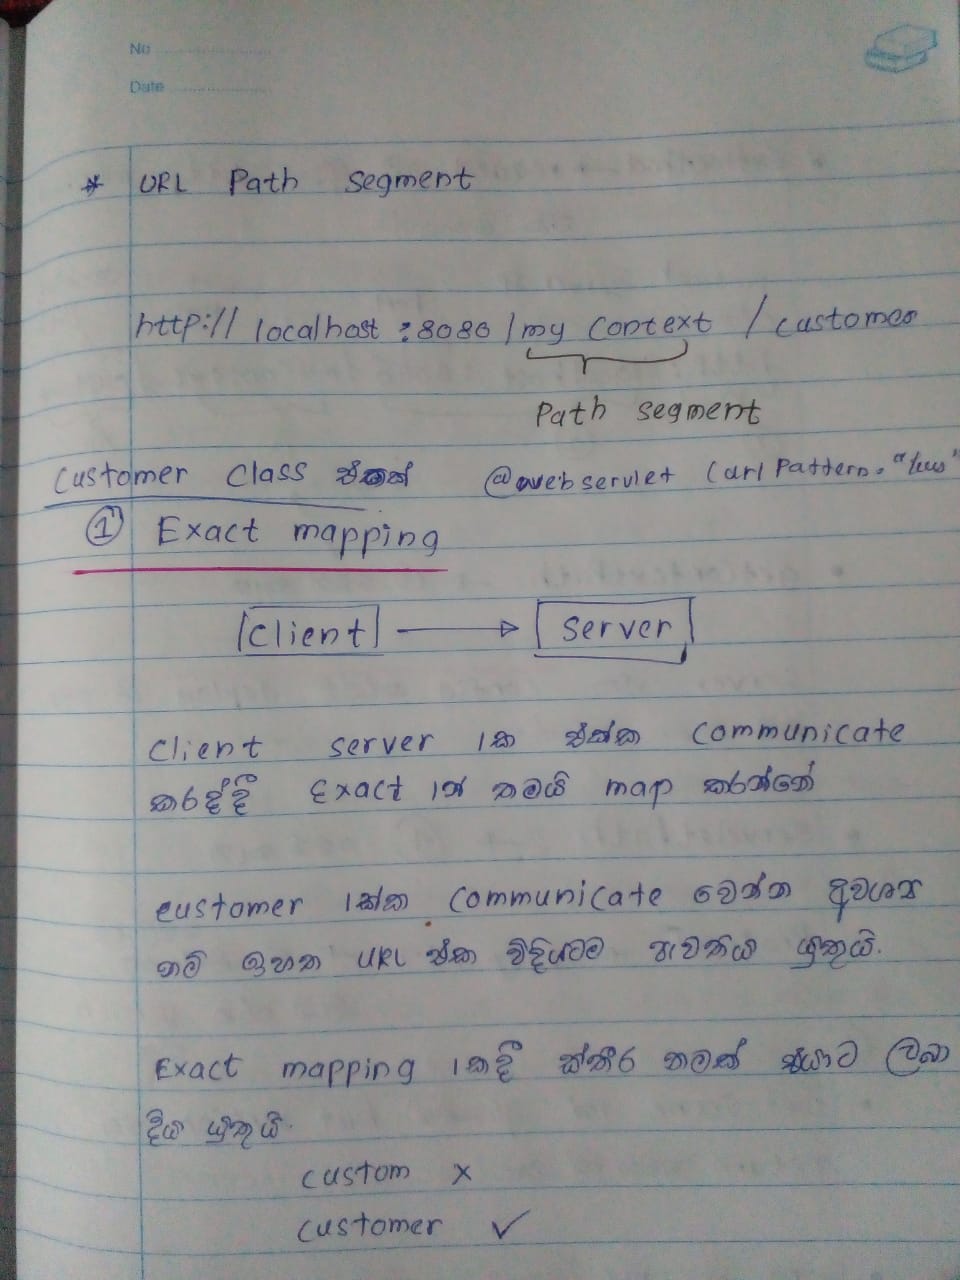 No
Date
* URL Path segment
http:// localhost : 8080 / my context / customer
Path segment
customer class එකක් @webservlet (urlPattern=
① Exact mapping
client → server
client server 1ක එක්ක communicate
කරද්දී Exact 1ක් තමයි map කරන්නේ
customer 1ක්ක communicate වෙන්න අවශ්‍ය
නම් ඉහත URL එක විදියටම පැවතිය යුතුයි.
Exact mapping 1කදී ස්තීර නමක් එයාට ලබා
දිය යුතුයි.
custom ×
customer ✓